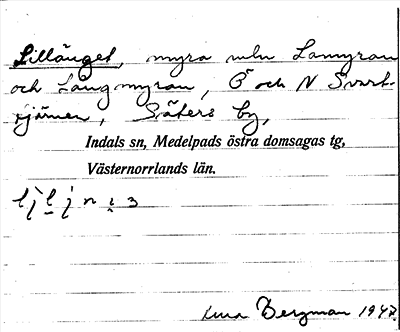 Lillänget, myra mln Lomyran
och Långmyran, Ö och N Svart-
tjärnen, Säters by,
Indals sn, Medelpads östra domsagas tg,
Västernorrlands län.
Bergman 1947.